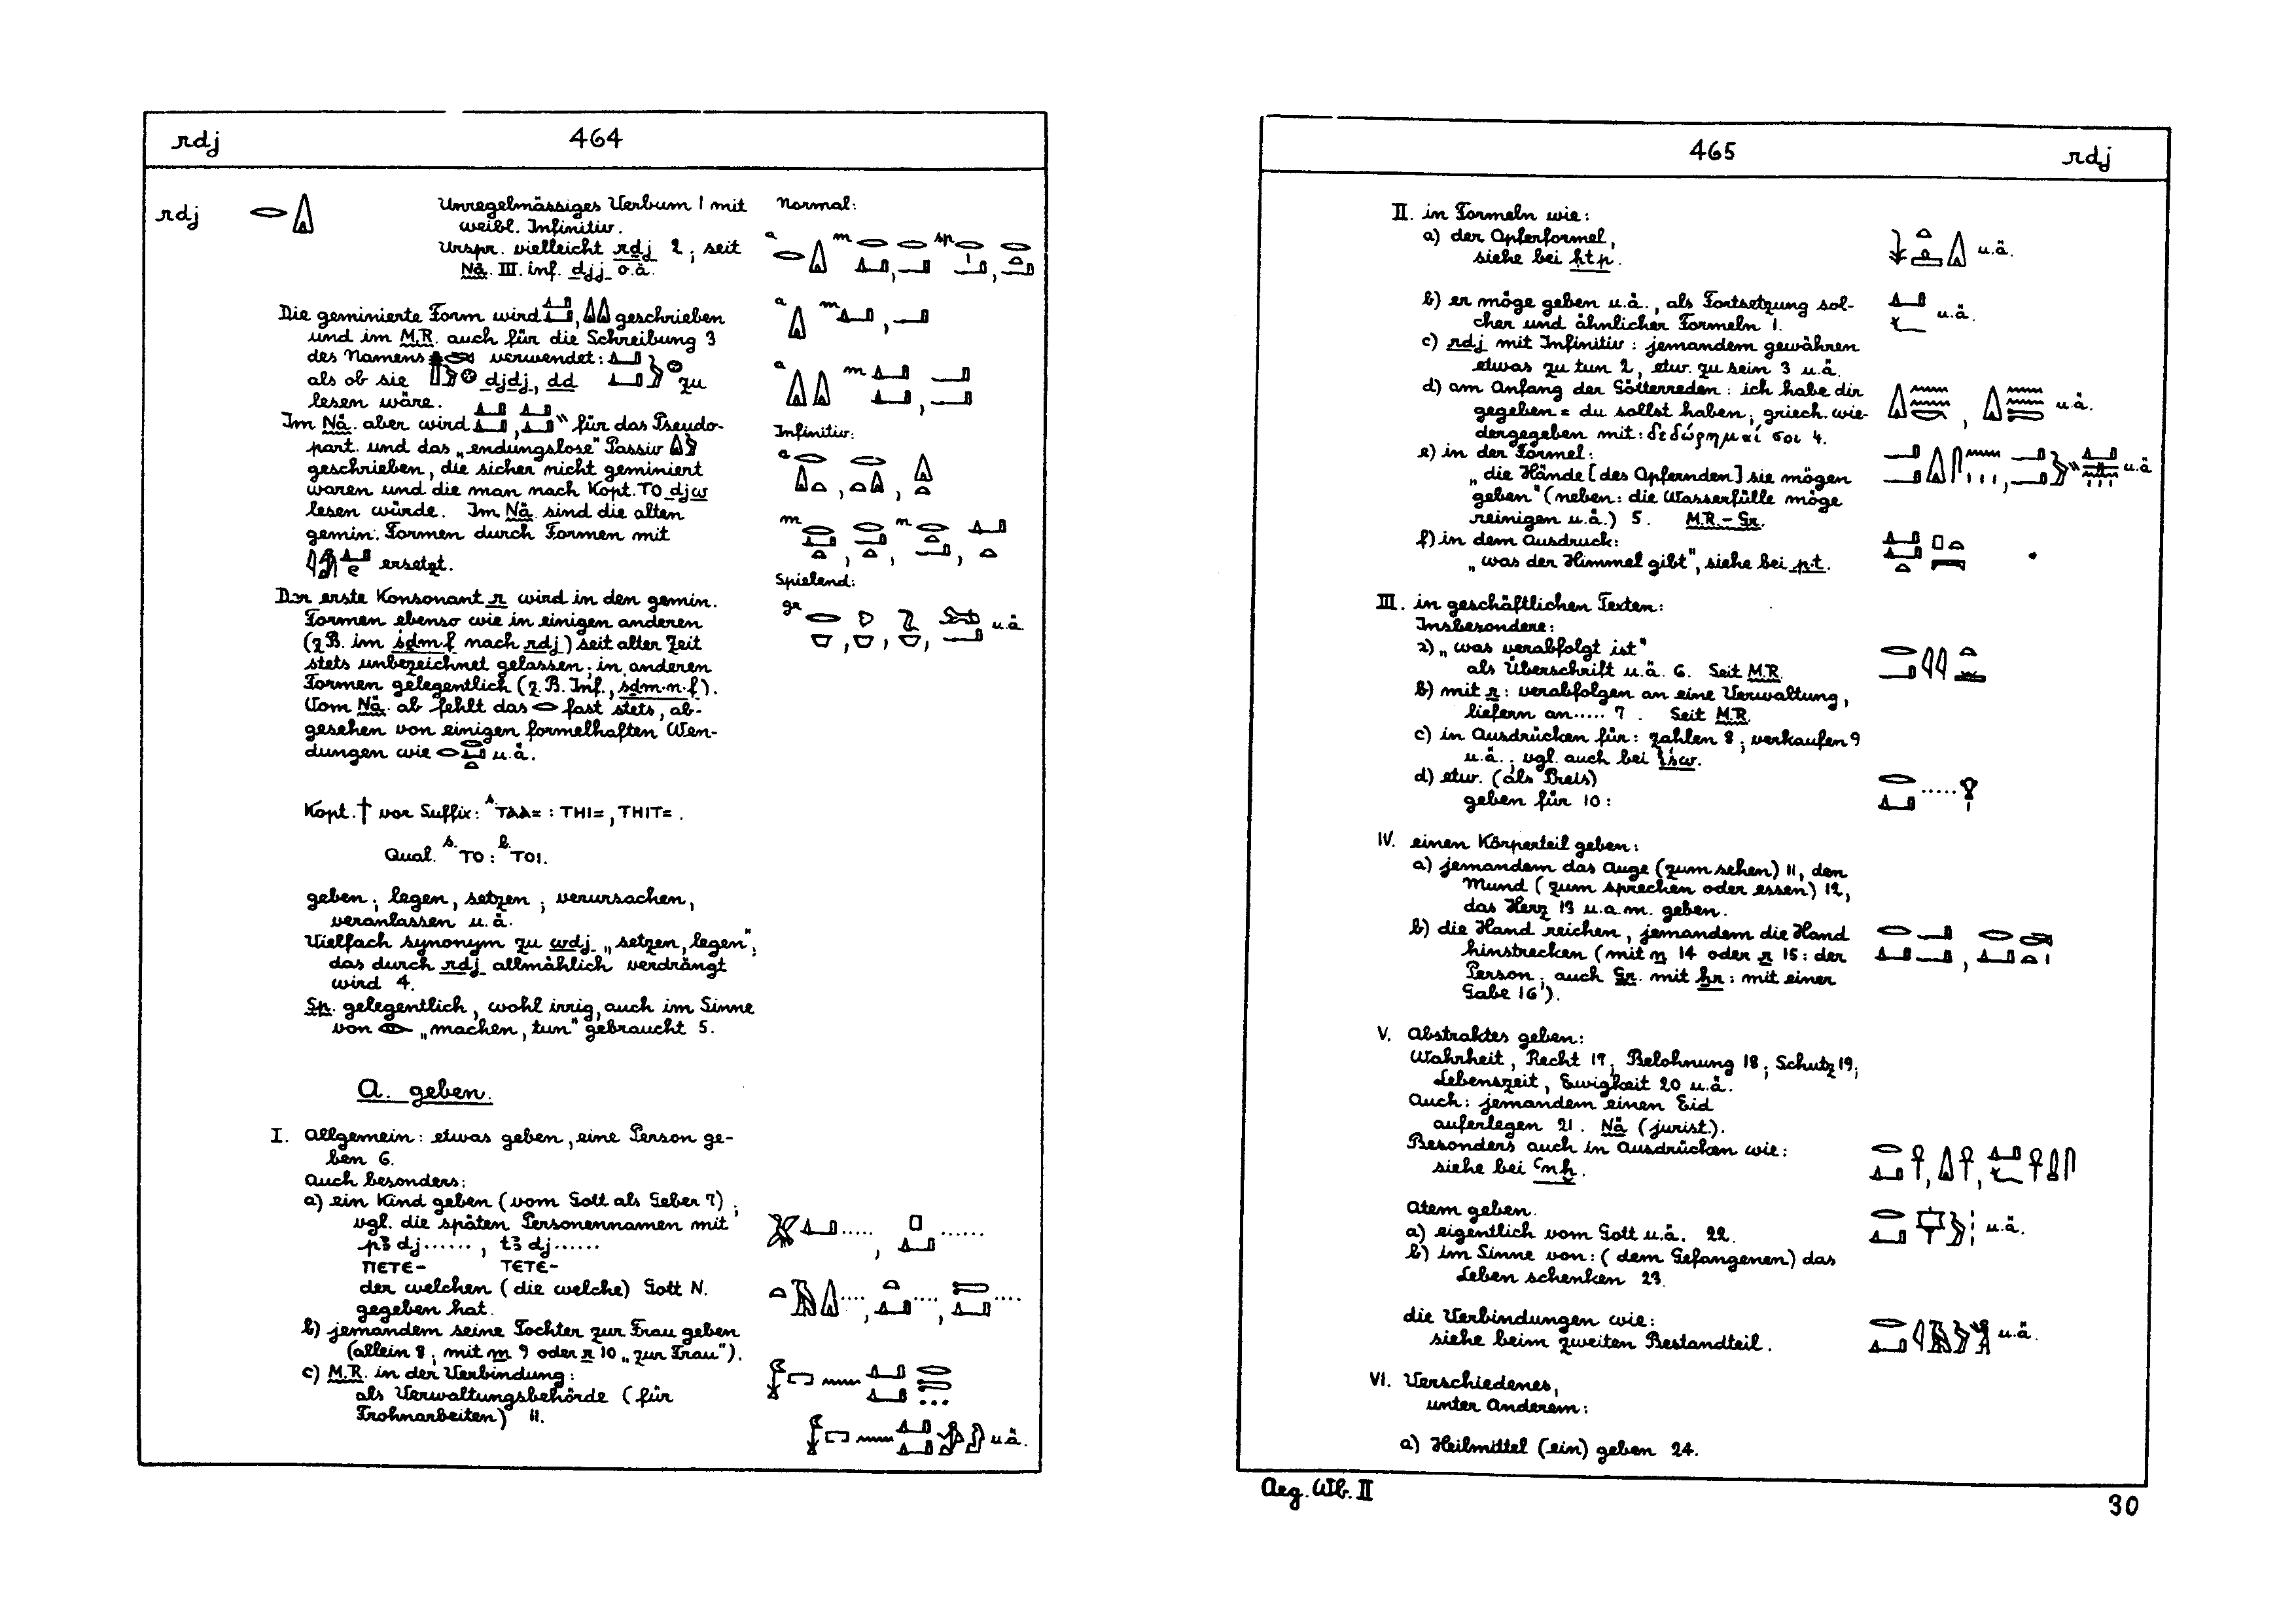 rdj 464
rdj
Unregelmässiges Verbum 1 mit
weibl. Infinitiv.
Urspr. vielleicht rdj 2; seit
Nä. III. inf. djj o.ä.
Normal:
a m sp
Die geminierte Form wird , geschrieben
und im M.R. auch für die Schreibung 3
des Namens verwendet:
als ob sie djdj, dd zu
lesen wäre.
Im Nä. aber wird , " für das Pseudo-
part. und das „endungslose" Passiv
geschrieben, die sicher nicht geminiert
waren und die man nach Kopt. TO djw
lesen würde. Im Nä. sind die alten
gemin. Formen durch Formen mit
ersetzt.
Der erste Konsonant r wird in den gemin.
Formen ebenso wie in einigen anderen
(z.B. im śdm.f nach rdj) seit alter Zeit
stets unbezeichnet gelassen; in anderen
Formen gelegentlich (z.B. Inf., śdm.n.f).
Vom Nä. ab fehlt das fast stets, ab-
gesehen von einigen formelhaften Wen-
dungen wie u.ä.
a m
a m
Infinitiv:
a
m n
Spielend:
gr u.ä.
Kopt. † vor Suffix: s. ⲦⲀⲀ= : ⲦHI=, ⲦHIⲦ= .
Qual. s. TO : b. TOI.
geben; legen, setzen; verursachen,
veranlassen u.ä.
Vielfach synonym zu wdj „setzen, legen",
das durch rdj allmählich verdrängt
wird 4.
Sp. gelegentlich, wohl irrig, auch im Sinne
von „machen, tun" gebraucht 5.
A. geben.
I. Allgemein: etwas geben, eine Person ge-
ben 6.
Auch besonders:
a) ein Kind geben (vom Gott als Geber 7);
vgl. die späten Personennamen mit
pꜣ dj......, tꜣ dj......
ⲠⲈⲦⲈ- ⲦⲈⲦⲈ-
der welchen (die welche) Gott N.
gegeben hat.
b) jemandem seine Tochter zur Frau geben
(allein 8; mit m 9 oder r 10 „zur Frau").
c) M.R. in der Verbindung:
als Verwaltungsbehörde (für
Frohnarbeiten) 11.
u.ä.
465 rdj
II. in Formeln wie:
a) der Opferformel, u.ä.
siehe bei ḥtp.
b) er möge geben u.ä., als Fortsetzung sol- u.ä.
cher und ähnlicher Formeln 1.
c) rdj mit Infinitiv: jemandem gewähren
etwas zu tun 2, etw. zu sein 3 u.ä.
d) am Anfang der Götterreden: ich habe dir u.ä.
gegeben = du sollst haben; griech. wie-
dergegeben mit: δεδώρημαί σοι 4.
e) in der Formel: u.ä
„die Hände [des Opfernden] sie mögen
geben" (neben: die Wasserfülle möge
reinigen u.ä.) 5. M.R.-Gr.
f) in dem Ausdruck:
„was der Himmel gibt", siehe bei p.t.
III. in geschäftlichen Texten:
Insbesondere:
a) „was verabfolgt ist"
als Überschrift u.ä. 6. Seit M.R.
b) mit r: verabfolgen an eine Verwaltung,
liefern an..... 7. Seit M.R.
c) in Ausdrücken für: zahlen 8; verkaufen 9
u.ä.; vgl. auch bei ꞽśw.
d) etw. (als Preis)
geben für 10:
IV. einen Körperteil geben:
a) jemandem das Auge (zum sehen) 11, den
Mund (zum sprechen oder essen) 12,
das Herz 13 u.a.m. geben.
b) die Hand reichen, jemandem die Hand
hinstrecken (mit n 14 oder r 15: der
Person; auch Gr. mit ḥr: mit einer
Gabe 16).
V. Abstraktes geben:
Wahrheit, Recht 17; Belohnung 18; Schutz 19;
Lebenszeit, Ewigkeit 20 u.ä.
Auch: jemandem einen Eid
auferlegen 21. Nä (jurist.).
Besonders auch in Ausdrücken wie:
siehe bei ꜥnḫ.
Atem geben. u.ä.
a) eigentlich vom Gott u.ä. 22.
b) im Sinne von: (dem Gefangenen) das
Leben schenken 23.
die Verbindungen wie: u.ä.
siehe beim zweiten Bestandteil.
VI. Verschiedenes,
unter Anderem:
a) Heilmittel (ein) geben 24.
Aeg. Wb. II 30